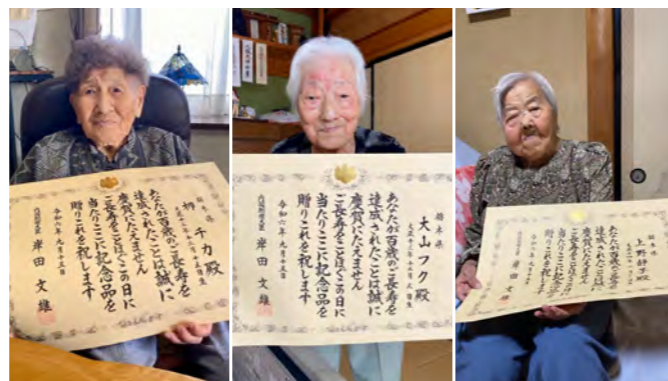 栃木県
千カ殿
あなたが百歳のご長寿を
達成されたことは誠に
慶賀にたえません
ご長寿をことほぐこの日に
当たりここに記念品を
贈りこれを祝します
令和六年九月十五日
内閣総理大臣 岸田文雄
栃木県
大山フク殿
あなたが百歳のご長寿を
達成されたことは誠に
慶賀にたえません
ご長寿をことほぐこの日に
当たりここに記念品を
贈りこれを祝します
令和六年九月十五日
内閣総理大臣 岸田文雄
栃木県
上野静子殿
あなたが百歳のご長寿を
達成されたことは誠に
慶賀にたえません
ご長寿をことほぐこの日に
当たりここに記念品を
贈りこれを祝します
令和六年九月十五日
内閣総理大臣 岸田文雄